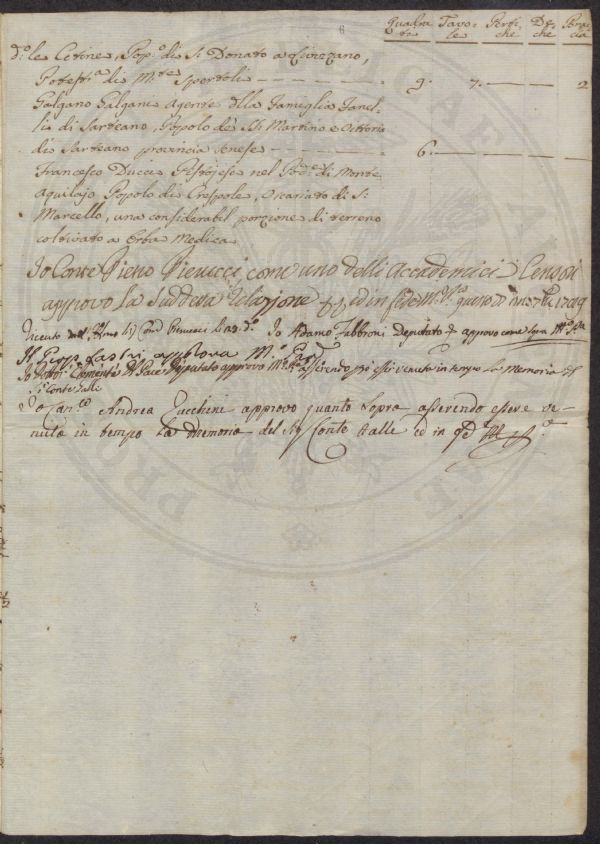 6
Quadra Tavo- Perti- De- Bracc
te le che che cia
d.º le Cetine, Pop.º di S. Donato a Livizzano,
Potest.ª di M.te Spertoli - - - - - - 9. 7. — — 2
Galgano Galgani Agente della Famiglia Fanel-
li di Sarteano, Popolo de SS. Martino e Vittoria
di Sarteano provincia Senese - - - - - 6. — — —
Francesco Ducci Pistojese nel Pod.e di Monte
Aquilajo Popolo di Crespole, Vicariato di S.
Marcello, una considerabil porzione di terreno
coltivato a Erba Medica
Io Conte Pietro Pierucci come uno delli Accademici Censori
approvo la Suddetta Relazione ed in fede M.º P.º questo dì
Io Adamo Fabbroni Deputato approvo come sopra M.º P.ª
Lastri approva M.º P.ª
Deputato approvo asserendo esser venuta in tempo la Memoria del
S. Conte Galli
Io Can.co Andrea Zucchini approvo quanto sopra asserendo essere ve-
nuta in tempo la Memoria del Sig. Conte Galle ed in